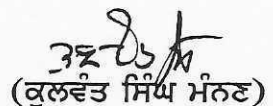 (ਕੁਲਵੰਤ ਸਿੰਘ ਮੰਨਣ)